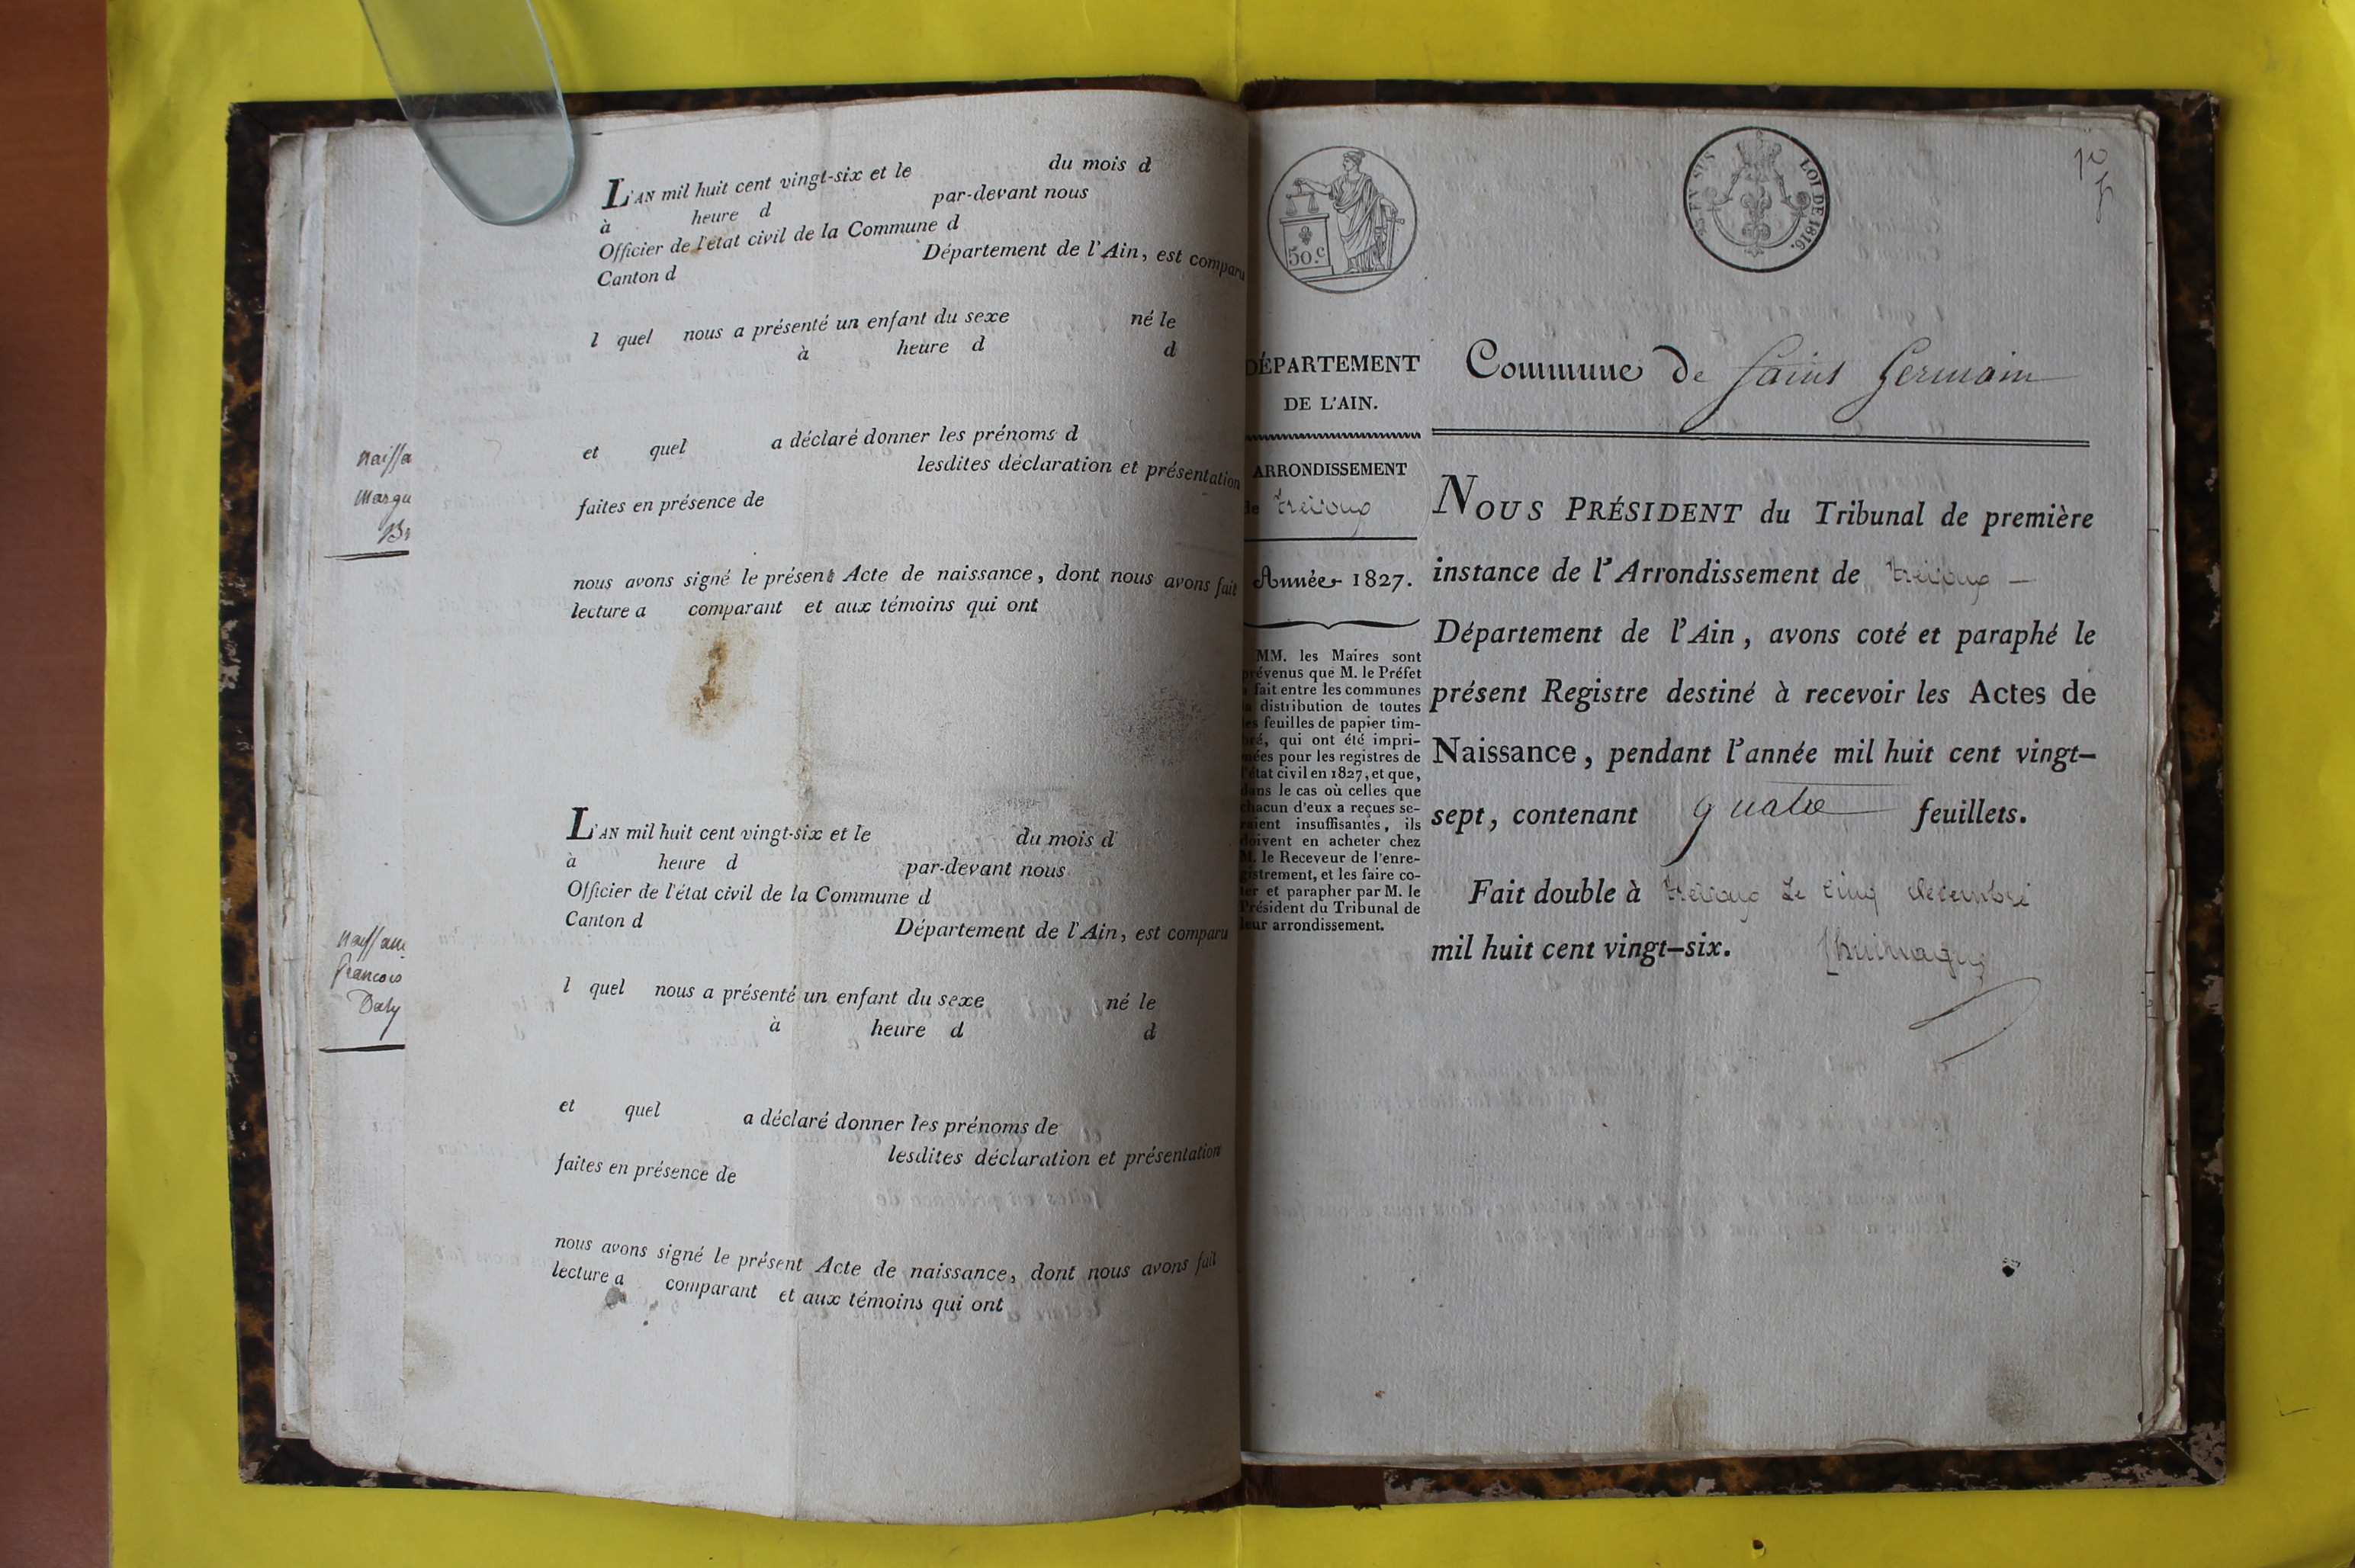 L'AN mil huit cent vingt-six et le du mois d
à heure d par-devant nous
Officier de l'état civil de la Commune d
Canton d Département de l'Ain, est comparu
l quel nous a présenté un enfant du sexe né le
à heure d d
et quel a déclaré donner les prénoms d
lesdites déclaration et présentation
faites en présence de
nous avons signé le présent Acte de naissance, dont nous avons fait
lecture a comparant et aux témoins qui ont
Naissa
Margu
Br
L'AN mil huit cent vingt-six et le du mois d
à heure d par-devant nous
Officier de l'état civil de la Commune d
Canton d Département de l'Ain, est comparu
l quel nous a présenté un enfant du sexe né le
à heure d d
et quel a déclaré donner les prénoms de
lesdites déclaration et présentation
faites en présence de
nous avons signé le présent Acte de naissance, dont nous avons fait
lecture a comparant et aux témoins qui ont
francois
50.c
EN SUS LOI DE 1816.
DÉPARTEMENT
DE L'AIN.
ARRONDISSEMENT
de trevoux
Année 1827.
MM. les Maires sont
prévenus que M. le Préfet
a fait entre les communes
la distribution de toutes
les feuilles de papier tim-
bré, qui ont été impri-
mées pour les registres de
l'état civil en 1827, et que,
dans le cas où celles que
chacun d'eux a reçues se-
raient insuffisantes, ils
doivent en acheter chez
M. le Receveur de l'enre-
gistrement, et les faire co-
ter et parapher par M. le
Président du Tribunal de
leur arrondissement.
Commune de Saint Germain
NOUS PRÉSIDENT du Tribunal de première
instance de l'Arrondissement de trevoux
Département de l'Ain, avons coté et paraphé le
présent Registre destiné à recevoir les Actes de
Naissance, pendant l'année mil huit cent vingt-
sept, contenant quatre feuillets.
Fait double à trevoux Le cinq décembre
mil huit cent vingt-six.